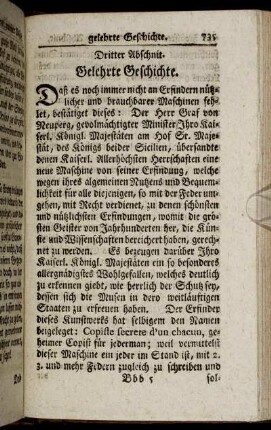 gelehrte Geschichte. 735
Dritter Abschnit.
Gelehrte Geschichte.
Daß es noch immer nicht an Erfindern nütz-
licher und brauchbarer Maschinen feh-
let, bestätiget dieses: Der Herr Graf von
Neuperg, gevolmächtigter Minister Jhro Kai-
serl. Königl. Majestäten am Hof Sr. Maje-
stät, des Königs beider Sicilien, übersandte
denen Kaiserl. Allerhöchsten Herrschaften eine
neue Maschine von seiner Erfindung, welche
wegen ihres algemeinen Nutzens und Bequem-
lichkeit für alle diejenigen, so mit der Feder umge-
hen, mit Recht verdienet, zu denen schönsten
und nützlichsten Erfindungen, womit die grö-
sten Geister von Jahrhunderten her, die Kün-
ste und Wissenschaften bereichert haben, gerech-
net zu werden. Es bezeugen darüber Jhro
Kaiserl. Königl. Majestäten ein so besonders
allergnädigstes Wohlgefallen, welches deutlich
zu erkennen giebt, wie herrlich der Schutz sey,
dessen sich die Musen in dero weitläuftigen
Staaten zu erfreuen haben. Der Erfinder
dieses Kunstwerks hat selbigem den Namen
beigeleget: Copiste secrete d'un chacun, ge-
heimer Copist für jederman; weil vermittelst
dieser Maschine ein jeder im Stand ist, mit 2.
3. und mehr Federn zugleich zu schreiben und
Bbb 5 sol-